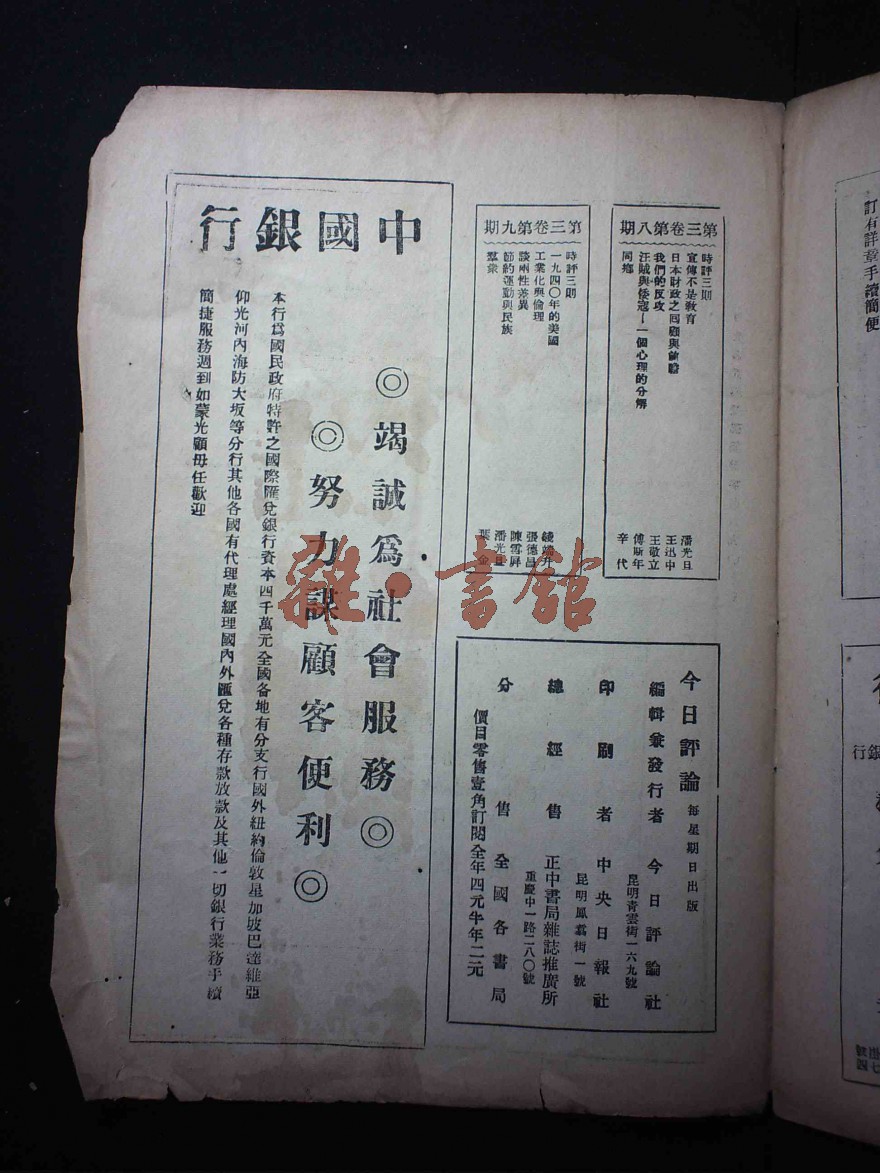 第三卷第八期
時評三則
宣傳不是教育
日本財政之回顧與前瞻
我們的反攻
汪賊與倭寇－一個心理的分解
同鄉
潘光旦
王迅中
王敬立
傅斯年
辛代
第三卷第九期
時評三則
一九四〇年的美國
工業化與倫理
談兩性差異
節約運動與民族
羣衆
錢端升
張德昌
陳雪屏
潘光旦
葉金
今日評論
每星期日出版
編輯兼發行者 今日評論社
昆明青雲街一六九號
印刷者 中央日報社
昆明鳳翥街一號
總經售 正中書局雜誌推廣所
重慶中一路二八〇號
分售 全國各書局
價目零售壹角訂閱全年四元半年二元
中國銀行
◎竭誠爲社會服務◎
◎努力謀顧客便利◎
本行爲國民政府特許之國際匯兌銀行資本四千萬元全國各地有分支行國外紐約倫敦星加坡巴達維亞
仰光河內海防大坂等分行其他各國有代理處經理國內外匯兌各種存款放款及其他一切銀行業務手續
簡捷服務週到如蒙光顧毋任歡迎
訂有詳章手續簡便
雜·書館